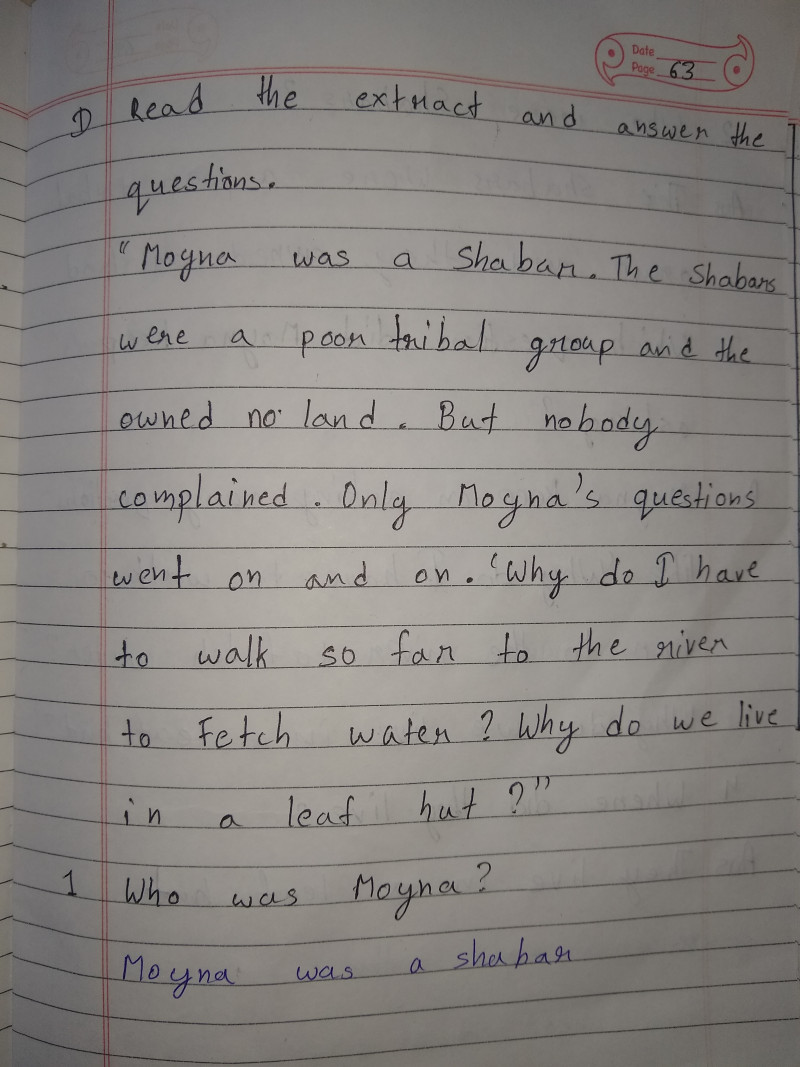 Date
Page 63
D Read the extract and answer the
questions.
"Moyna was a Shabar. The Shabars
were a poor tribal group and the
owned no land. But nobody
complained. Only Moyna's questions
went on and on. 'Why do I have
to walk so far to the river
to Fetch water? Why do we live
in a leaf hut?"
1 Who was Moyna?
Moyna was a shabar